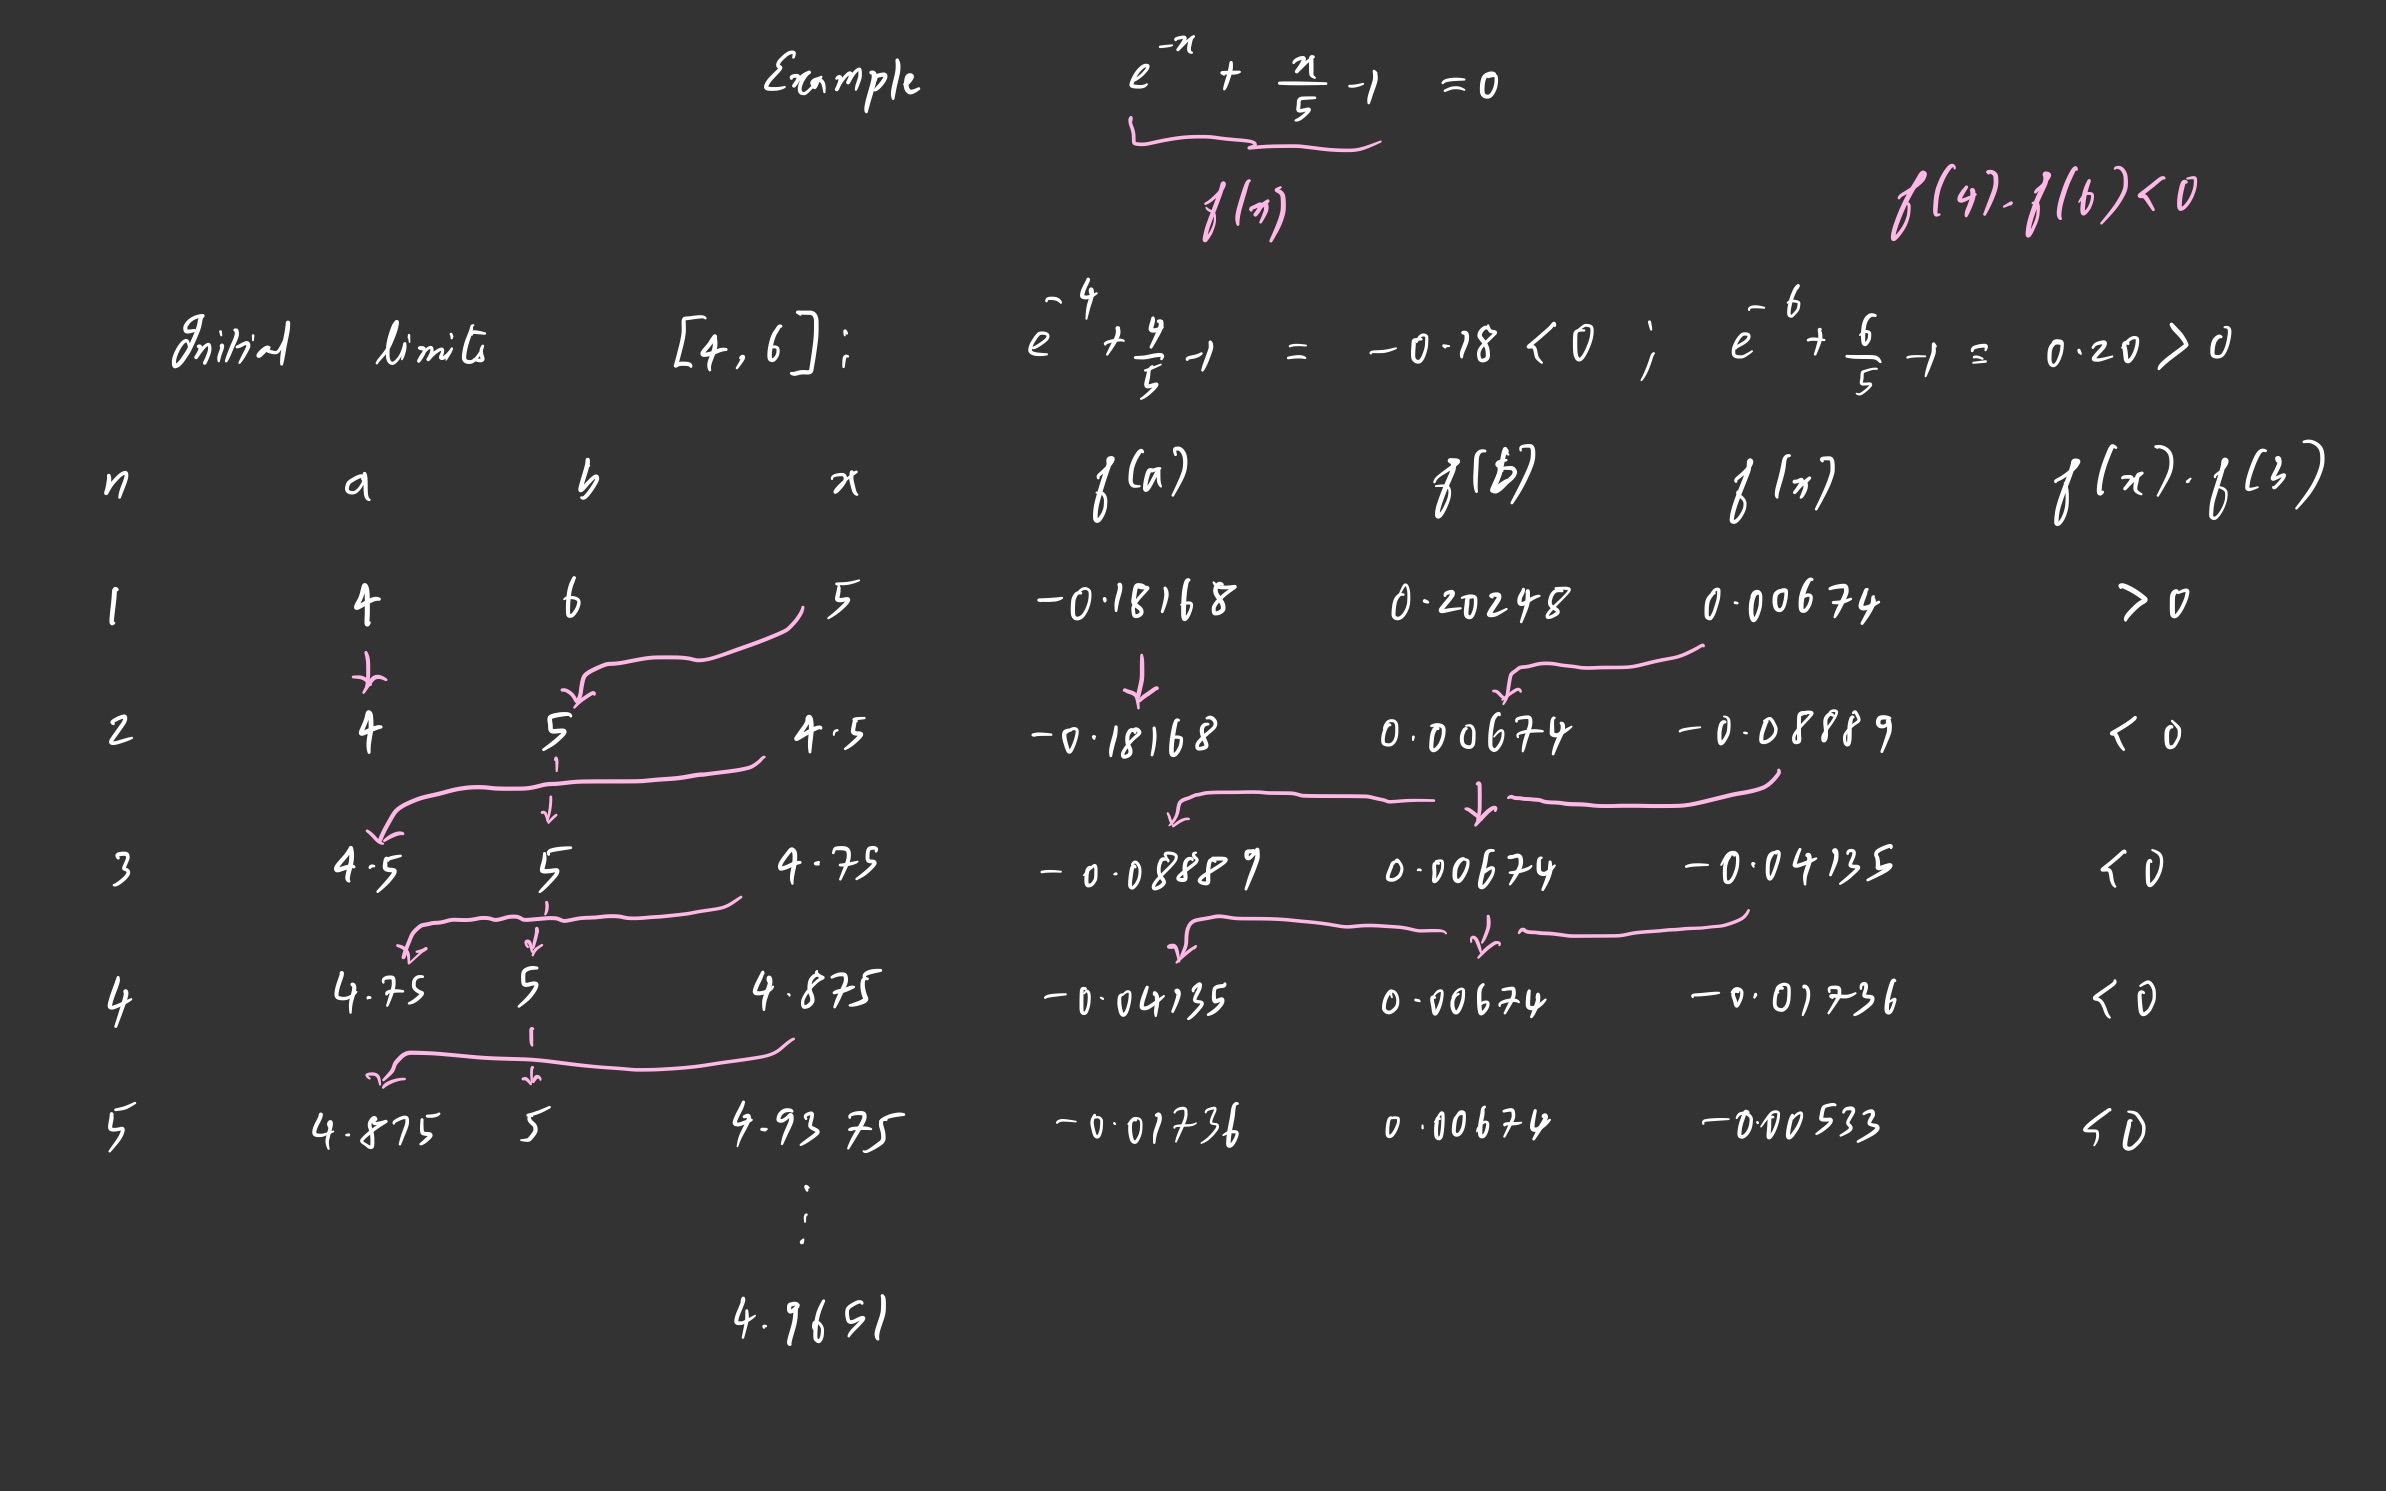 Example e^{-x} + x/5 - 1 = 0
f(x)
f(4) · f(6) < 0
Initial limits [4, 6] : e^{-4} + 4/5 - 1 = -0.18 < 0 ; e^{-6} + 6/5 - 1 = 0.20 > 0
n a b x f(a) f(b) f(x) f(x) · f(b)
1 4 6 5 -0.18168 0.20248 0.00674 > 0
2 4 5 4.5 -0.18168 0.00674 -0.08889 < 0
3 4.5 5 4.75 -0.08889 0.00674 -0.04135 < 0
4 4.75 5 4.875 -0.04135 0.00674 -0.01736 < 0
5 4.875 5 4.9375 -0.01736 0.00674 -0.00533 < 0
⋮
4.9651